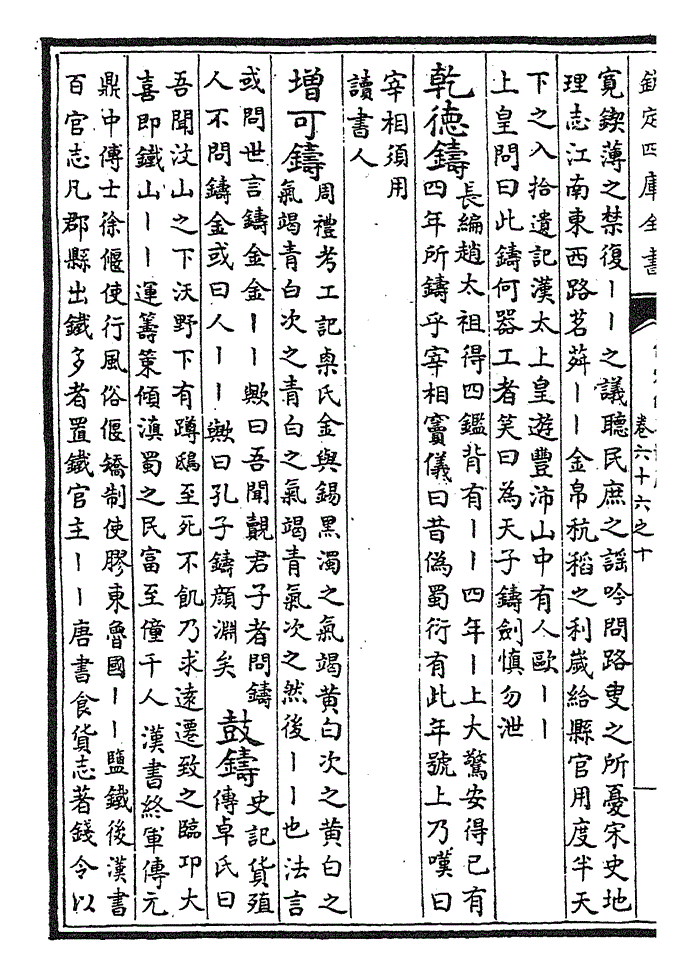 欽定四庫全書
卷六十六之十
寛鍥薄之禁復丨丨之議聽民庶之謡吟問路叟之所憂宋史地
理志江南東西路茗荈丨丨金帛秔稻之利歲給縣官用度半天
下之入拾遺記漢太上皇遊豐沛山中有人歐丨丨
上皇問曰此鑄何器工者笑曰為天子鑄劍慎勿泄
乾德鑄
長編趙太祖得四鑑背有丨丨四年丨上大驚安得已有
四年所鑄乎宰相竇儀曰昔偽蜀衍有此年號上乃嘆曰
宰相須用
讀書人
增可鑄
周禮考工記㮚氏金與錫黑濁之氣竭黃白次之黃白之
氣竭青白次之青白之氣竭青氣次之然後丨丨也法言
或問世言鑄金金丨丨歟曰吾聞覿君子者問鑄
人不問鑄金或曰人丨丨歟曰孔子鑄顔淵矣
鼓鑄
史記貨殖
傳卓氏曰
吾聞汶山之下沃野下有蹲鴟至死不飢乃求遠遷致之臨卭大
喜即鐵山丨丨運籌策傾滇蜀之民富至僮千人 漢書終軍傳元
鼎中傅士徐偃使行風俗偃矯制使膠東魯國丨丨鹽鐵後漢書
百官志凡郡縣出鐵多者置鐵官主丨丨唐書食貨志著錢令以